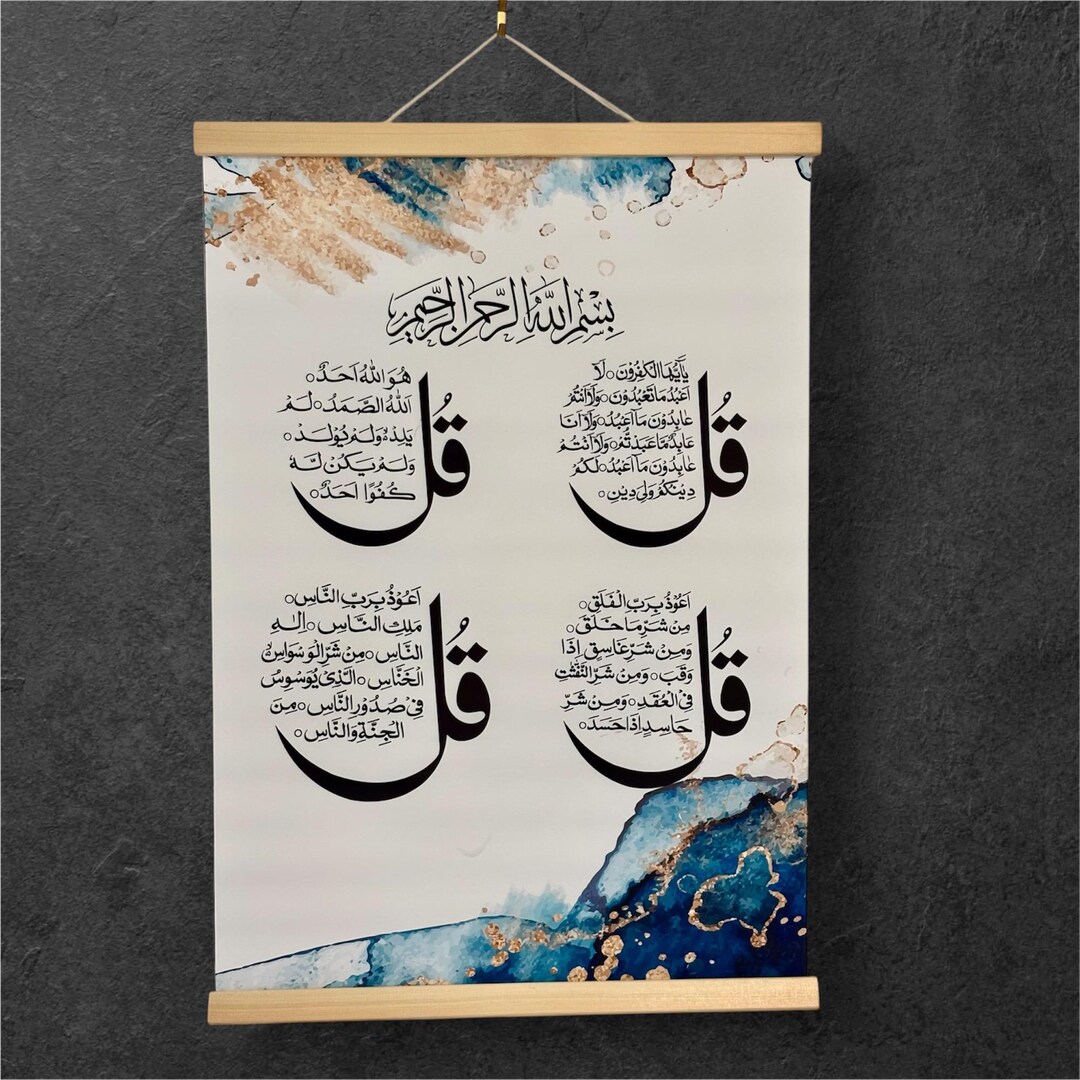 بِسْمِ اللهِ الرَّحْمٰنِ الرَّحِيْمِ
قُلْ
يٰاَيُّهَا الْكٰفِرُوْنَ ○ لَآ
اَعْبُدُ مَا تَعْبُدُوْنَ ○ وَلَآ اَنْتُمْ
عٰبِدُوْنَ مَآ اَعْبُدُ ○ وَلَآ اَنَا
عَابِدٌ مَّا عَبَدْتُّمْ ○ وَلَآ اَنْتُمْ
عٰبِدُوْنَ مَآ اَعْبُدُ ○ لَكُمْ
دِيْنُكُمْ وَلِيَ دِيْنِ ○
قُلْ
هُوَ اللهُ اَحَدٌ ○
اَللهُ الصَّمَدُ ○ لَمْ
يَلِدْ ○ وَلَمْ يُوْلَدْ ○
وَلَمْ يَكُنْ لَّهٗ
كُفُوًا اَحَدٌ ○
قُلْ
اَعُوْذُ بِرَبِّ الْفَلَقِ ○
مِنْ شَرِّ مَا خَلَقَ ○
وَمِنْ شَرِّ غَاسِقٍ اِذَا
وَقَبَ ○ وَمِنْ شَرِّ النَّفّٰثٰتِ
فِي الْعُقَدِ ○ وَمِنْ شَرِّ
حَاسِدٍ اِذَا حَسَدَ ○
قُلْ
اَعُوْذُ بِرَبِّ النَّاسِ ○
مَلِكِ النَّاسِ ○ اِلٰهِ
النَّاسِ ○ مِنْ شَرِّ الْوَسْوَاسِ ○
الْخَنَّاسِ ○ الَّذِيْ يُوَسْوِسُ
فِيْ صُدُوْرِ النَّاسِ ○ مِنَ
الْجِنَّةِ وَالنَّاسِ ○